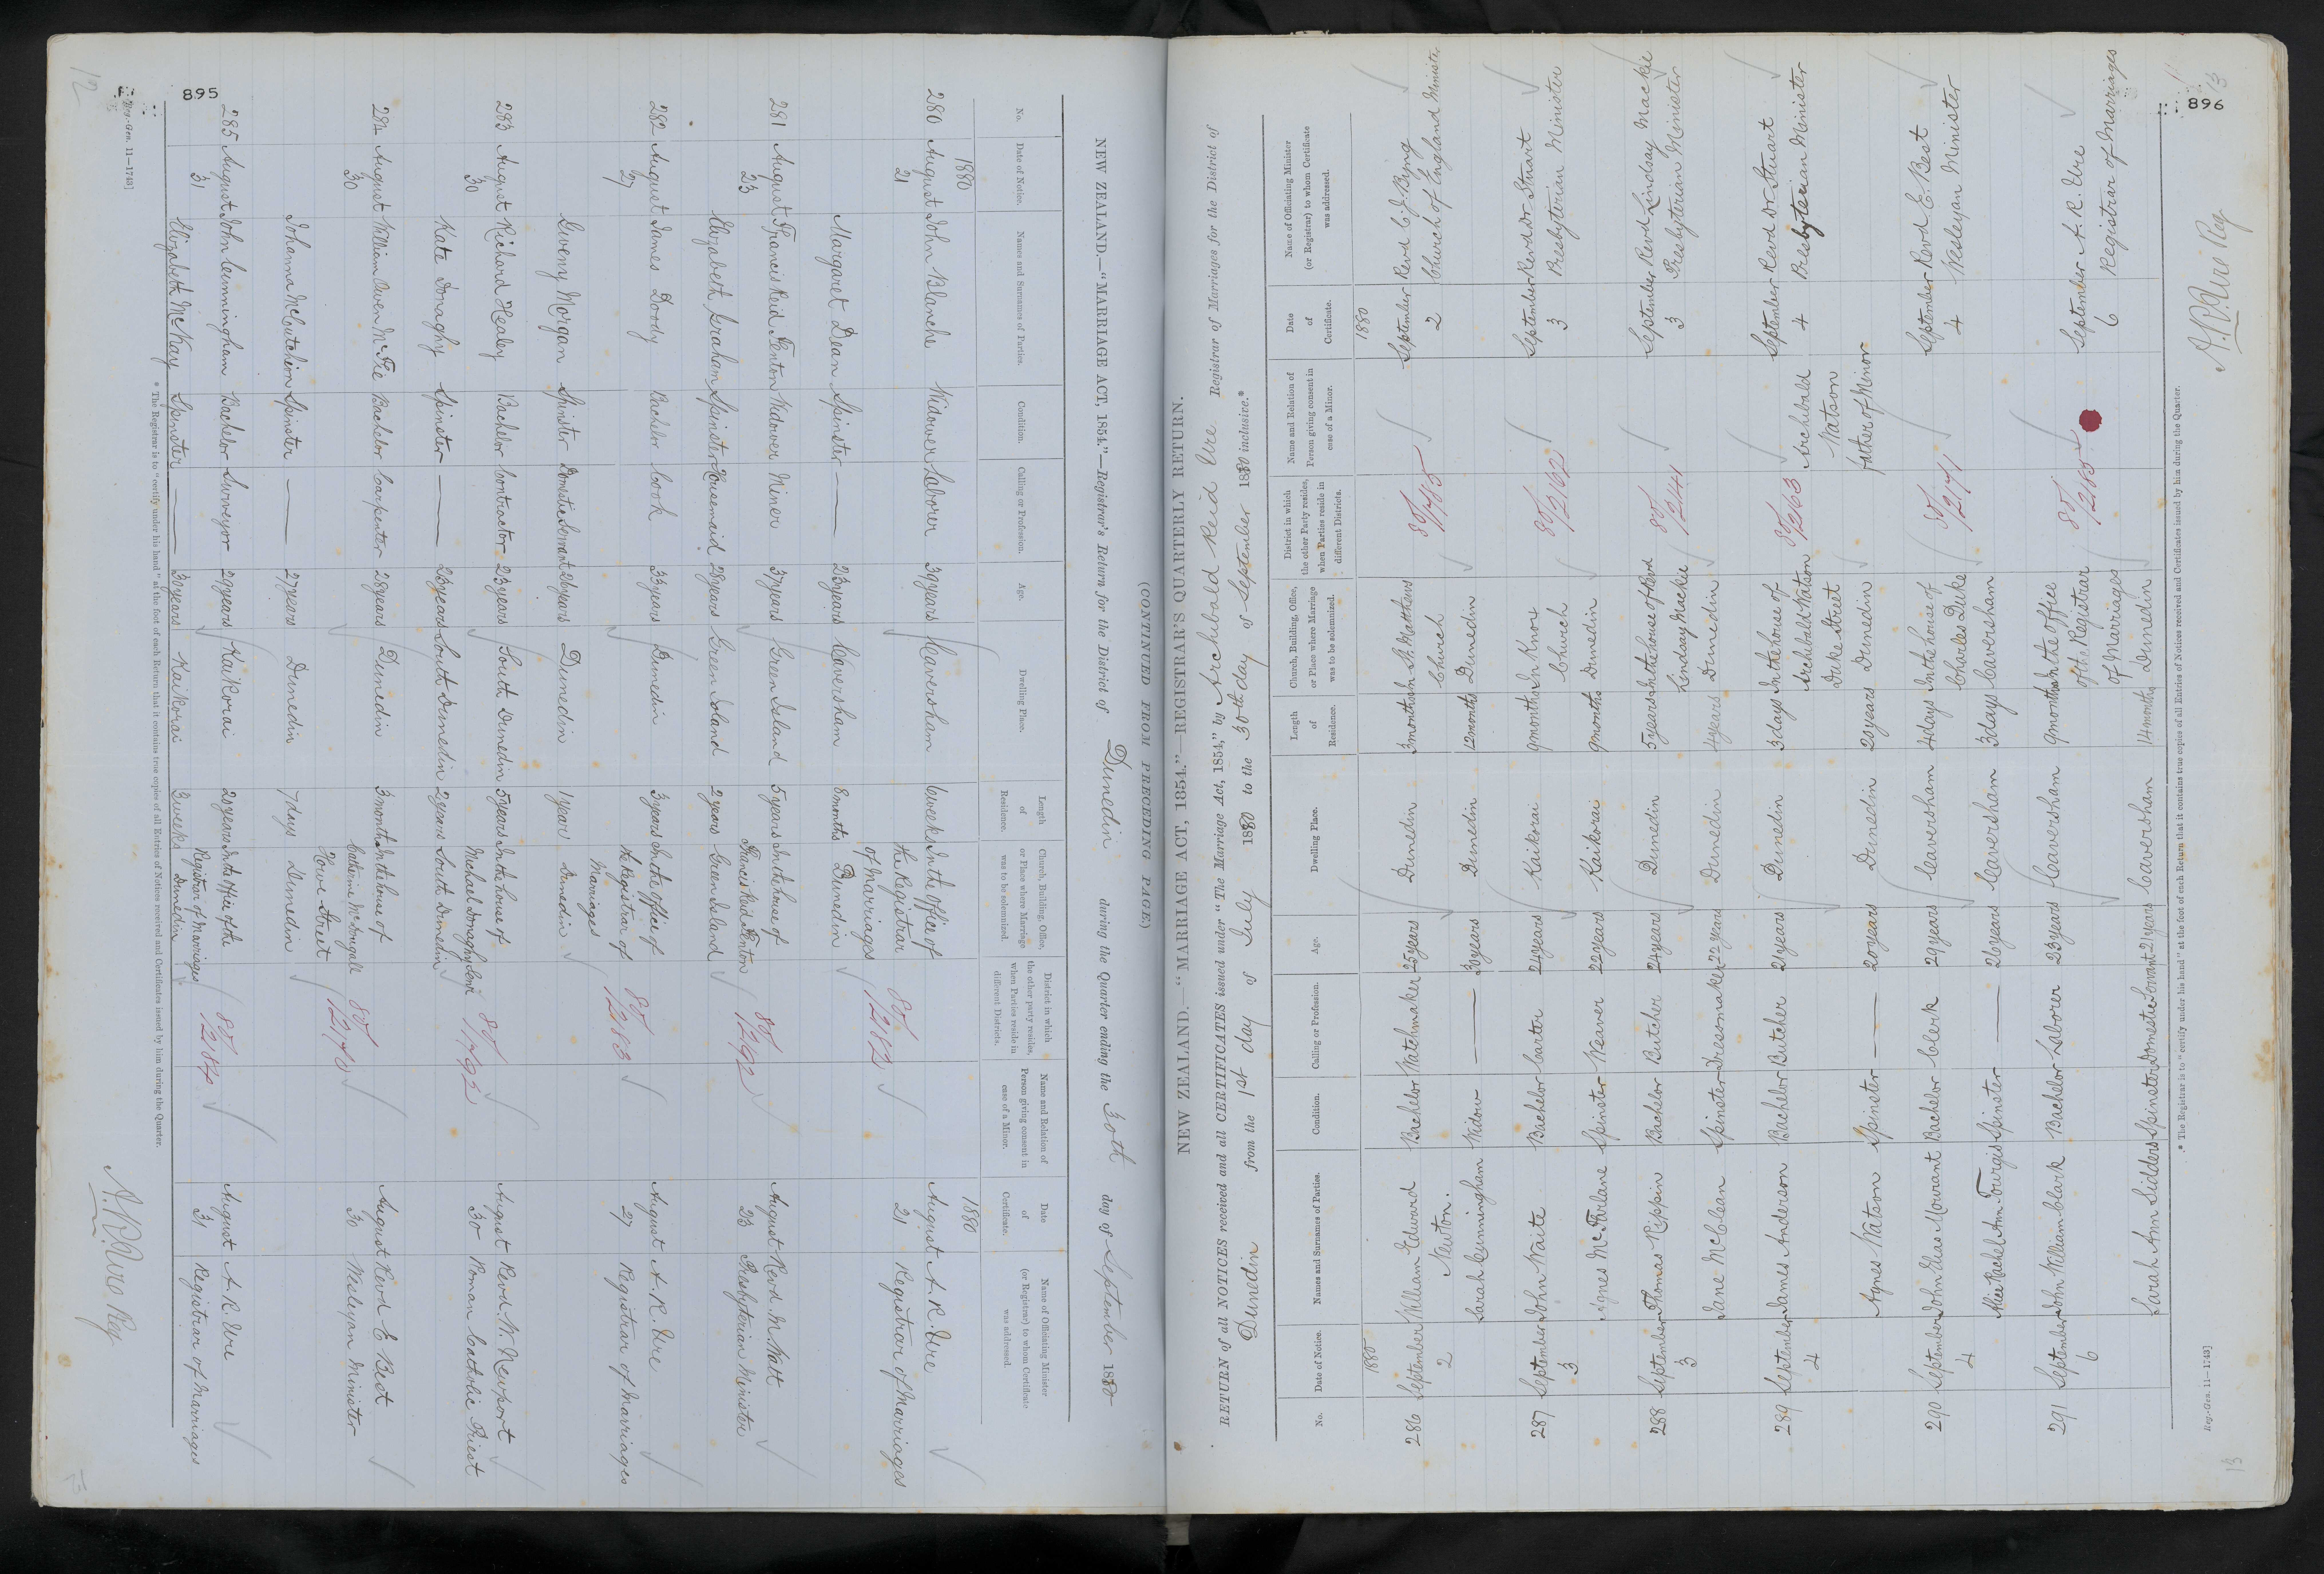 895
12
NEW ZEALAND.—"MARRIAGE ACT, 1854."—Registrar's Return for the District of Dunedin during the Quarter ending the 30th day of September 1880
(CONTINUED FROM PRECEDING PAGE)
No. Date of Notice. Names and Surnames of Parties. Condition. Calling or Profession. Age. Dwelling Place. Length of Residence. Church, Building, Office, or Place where Marriage was to be solemnized. District in which the other party resides, when Parties reside in different Districts. Name and Relation of Person giving consent in case of a Minor. Date of Certificate. Name of Officiating Minister (or Registrar) to whom Certificate was addressed.
1880 1880
280 August John Blanche Widower Laborer 39 years Caversham 6 weeks In the office of 80/2182 August A. R. Ure
21 the Registrar 21 Registrar of Marriages
of Marriages
Margaret Dean Spinster — 23 years Caversham 8 months Dunedin
281 August Francis Reid Fenton Widower Miner 37 years Green Island 5 years In the house of August Revd. M. Watt
23 Francis Reid Fenton 23 Presbyterian Minister
Elizabeth Graham Spinster Housemaid 28 years Green Island 2 years Green Island
282 August James Doody Bachelor Cook 33 years Dunedin 3 years In the office of 80/2183 August A. R. Ure
27 the Registrar of 27 Registrar of Marriages
Marriages
Gweny Morgan Spinster Domestic Servant 26 years Dunedin 1 year Dunedin
283 August Richard Healey Bachelor Contractor 23 years South Dunedin 5 years In the house of August Revd. W. Newport
30 Michael Donaghy 30 Roman Catholic Priest
Kate Donaghy Spinster — 23 years South Dunedin 2 years South Dunedin
284 August William Owen McFie Bachelor Carpenter 28 years Dunedin 3 months In the house of August Revd E Best
30 Catherine McDougall 30 Wesleyan Minister
Howe Street
Johanna McCutcheon Spinster — 27 years Dunedin 7 days Dunedin
285 August John Cunningham Bachelor Surveyor 29 years Kaikorai 20 years In the office of the 80/2184 August A. R. Ure
31 Registrar of Marriages 31 Registrar of Marriages
Elizabeth McKay Spinster — 30 years Kaikorai 3 weeks Dunedin
* The Registrar is to "certify under his hand" at the foot of each Return that it contains true copies of all Entries of Notices received and Certificates issued by him during the Quarter.
Reg.-Gen. 11—1743]
A. R. Ure Reg
896
13
NEW ZEALAND.—"MARRIAGE ACT, 1854."—REGISTRAR'S QUARTERLY RETURN.
RETURN of all NOTICES received and all CERTIFICATES issued under "The Marriage Act, 1854," by Archibald Reid Ure Registrar of Marriages for the District of
Dunedin from the 1st day of July 1880 to the 30th day of September 1880 inclusive.*
No. Date of Notice. Names and Surnames of Parties. Condition. Calling or Profession. Age. Dwelling Place. Length of Residence. Church, Building, Office, or Place where Marriage was to be solemnized. District in which the other Party resides, when Parties reside in different Districts. Name and Relation of Person giving consent in case of a Minor. Date of Certificate. Name of Officiating Minister (or Registrar) to whom Certificate was addressed.
1880 1880
286 September William Edward Bachelor Watchmaker 25 years Dunedin 3 months In St. Matthews September Revd C. J. Byng
2 Newton. Church 2 Church of England Minister
Sarah Cunningham Widow — 30 years Dunedin 12 months Dunedin
287 September John Waite Bachelor Carter 24 years Kaikorai 9 months In Knox 80/2162 September Revd Dr Stuart
3 Church 3 Presbyterian Minister
Agnes McFarlane Spinster Weaver 22 years Kaikorai 9 months Dunedin
288 September Thomas Rippin Bachelor Butcher 24 years Dunedin 5 years In the house of Revd September Revd Lindsay Mackie
3 Lindsay Mackie 3 Presbyterian Minister
Jane McClean Spinster Dressmaker 22 years Dunedin 4 years Dunedin
289 September James Anderson Bachelor Butcher 21 years Dunedin 3 days In the house of Archibald September Revd Dr Stuart
4 Archibald Watson Watson 4 Presbyterian Minister
Duke Street father of Minor
Agnes Watson Spinster — 20 years Dunedin 20 years Dunedin
290 September John Elias Mourant Bachelor Clerk 29 years Caversham 4 days In the house of September Revd E. Best
4 Charles Duke 4 Wesleyan Minister
Alice Rachel Ann Turgis Spinster — 26 years Caversham 3 days Caversham
291 September John William Clark Bachelor Laborer 23 years Caversham 9 months In the office 80/2185 September A. R. Ure
6 of the Registrar 6 Registrar of Marriages
of Marriages
Sarah Ann Sidders Spinster Domestic Servant 21 years Caversham 14 months Dunedin
* The Registrar is to "certify under his hand" at the foot of each Return that it contains true copies of all Entries of Notices received and Certificates issued by him during the Quarter.
Reg.-Gen. 11—1743]
A. R. Ure Reg
13